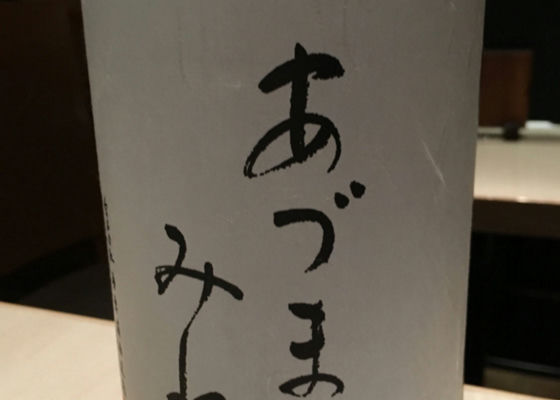 あづま
み